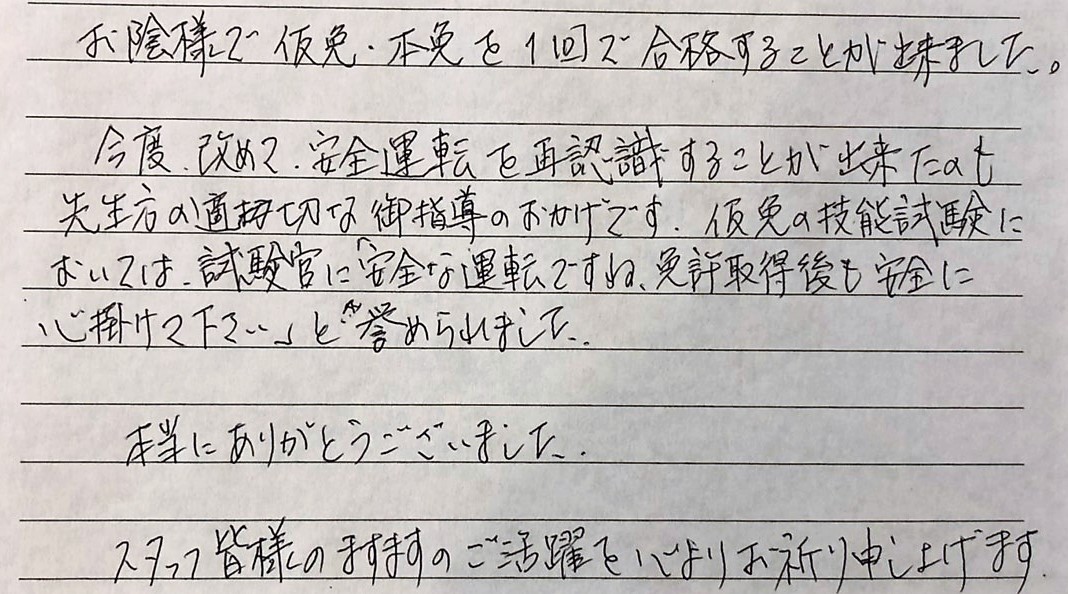 お陰様で仮免・本免を1回で合格することが出来ました。
今度、改めて、安全運転を再認識することが出来たのも
先生方の適切な御指導のおかげです。仮免の技能試験に
おいては、試験官に「安全な運転ですね、免許取得後も安全に
心掛けて下さい」と誉められました。
本当にありがとうございました。
スタッフ皆様のますますのご活躍を心よりお祈り申し上げます。